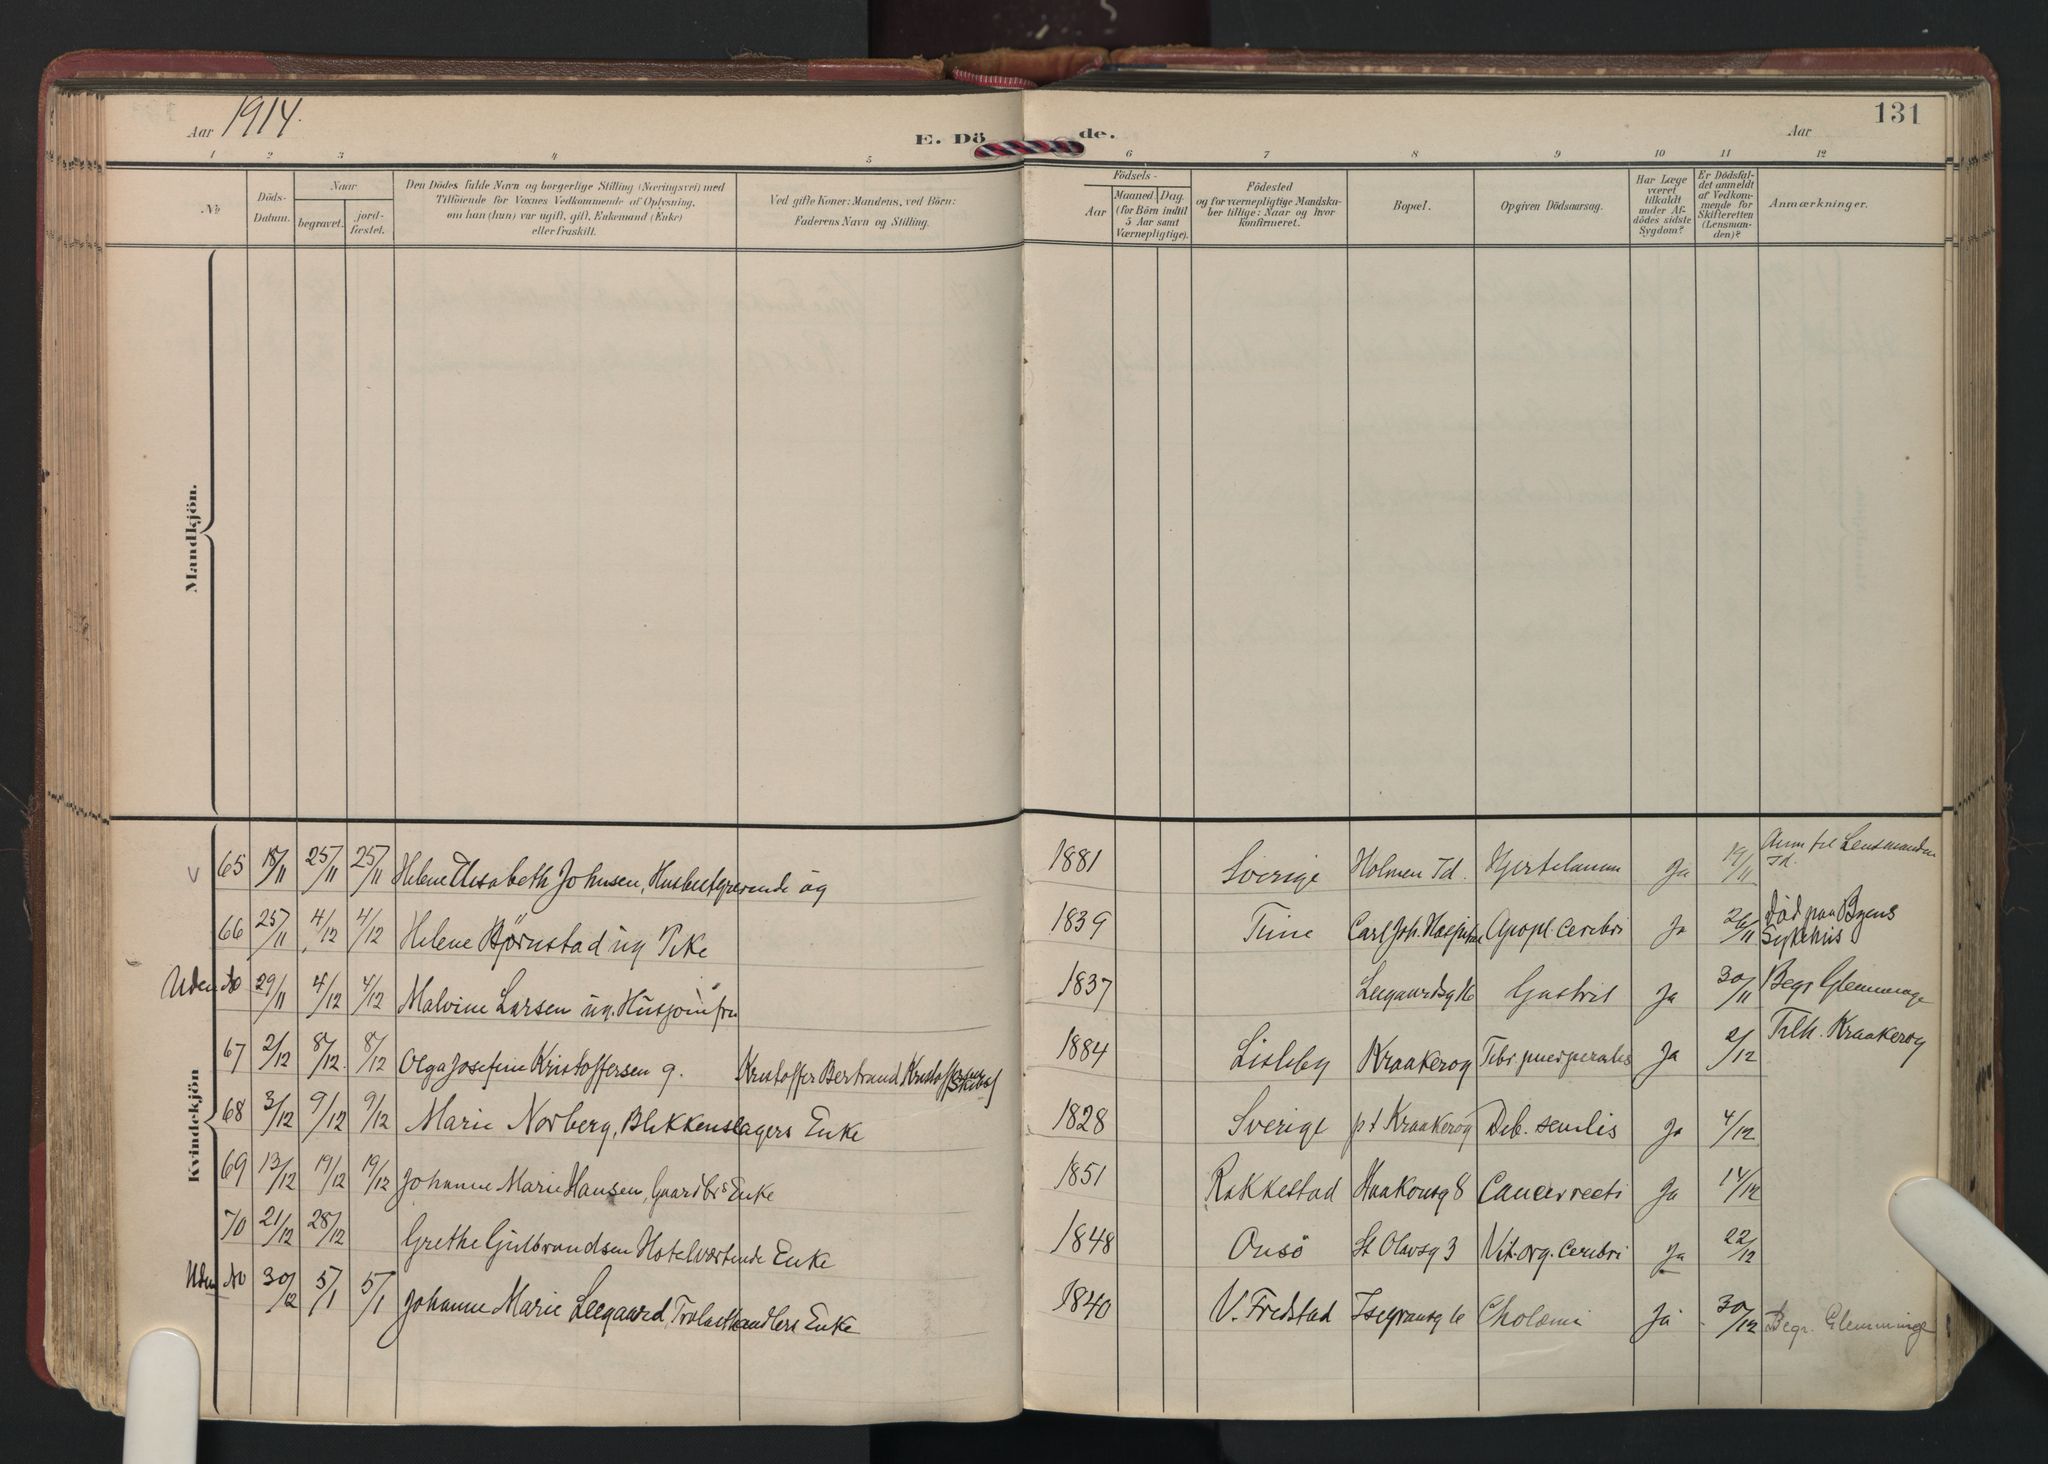 131
Aar 1914.
E. Döde.
Aar
1 2 3 4 5 6 7 8 9 10 11 12
No
Döds-Datum.
Naar
begravet.
jord-fæstet.
Den Dödes fulde Navn og borgerlige Stilling (Næringsvei) med
Tilföiende for Voxnes Vedkommende af Oplysning,
om han (hun) var ugift, gift, Enkemand (Enke)
eller fraskilt.
Ved gifte Koner: Mandens, ved Börn:
Faderens Navn og Stilling.
Födsels-
Aar
Maaned. Dag.
(for Börn indtil
5 Aar samt
Værnepligtige).
Födested
og for værnepligtige Mandska-
ber tillige: Naar og hvor
konfirmeret.
Bopæl.
Opgiven Dödsaarsag.
Har Læge
været
tilkaldt
under Af-
dödes sidste
Sygdom?
Er Dödsfal-
det anmeldt
af Vedkom-
mende for
Skifteretten
(Lensman-
den)?
Anmærkninger.
Mandkjön.
Kvindekjön
65 18/11 25/11 25/11 Helene Elisabeth Johnsen, Husbestyrerinde ug 1881 Sverige Holmen Td. Hjertelamm Ja 19/11 Anm til Lensmanden Td.
66 25/11 4/12 4/12 Helene Bjørnstad ug Pike 1839 Tune Carl Joh. Hospital Apopl. cerebri Ja 26/11 Död paa Byens Sykehus
Uden No 29/11 4/12 4/12 Malvine Larsen ug. Husjomfru 1837 Leegaardsg 16 Gastrit Ja 30/11 Begr Glemminge
67 2/12 8/12 8/12 Olga Josefine Kristoffersen g. Kristoffer Bertrand Kristoffersen 1884 Lisleby Kraakerøy Febr. puerperalis Ja 2/12 Tilh. Kraakerøy
68 3/12 9/12 9/12 Marie Norberg, Blikkenslagers Enke 1828 Sverige p.t Kraakerøy Deb. senilis Ja 4/12
69 13/12 19/12 19/12 Johanne Marie Hansen, Gaardbrs Enke 1851 Rakkestad Haakonsg 8 Cancer recti Ja 14/12
70 21/12 28/12 Grethe Gulbrandsen Hotelværtinde Enke 1848 Onsö St Olavsg 3 Vit. org. cerebri Ja 22/12
Uden No 30/12 5/1 5/1 Johanne Marie Leegaard, Trælasthandlers Enke 1840 V. Fredstad Isegransg 6 Cholæmi Ja 30/12 Begr. Glemminge